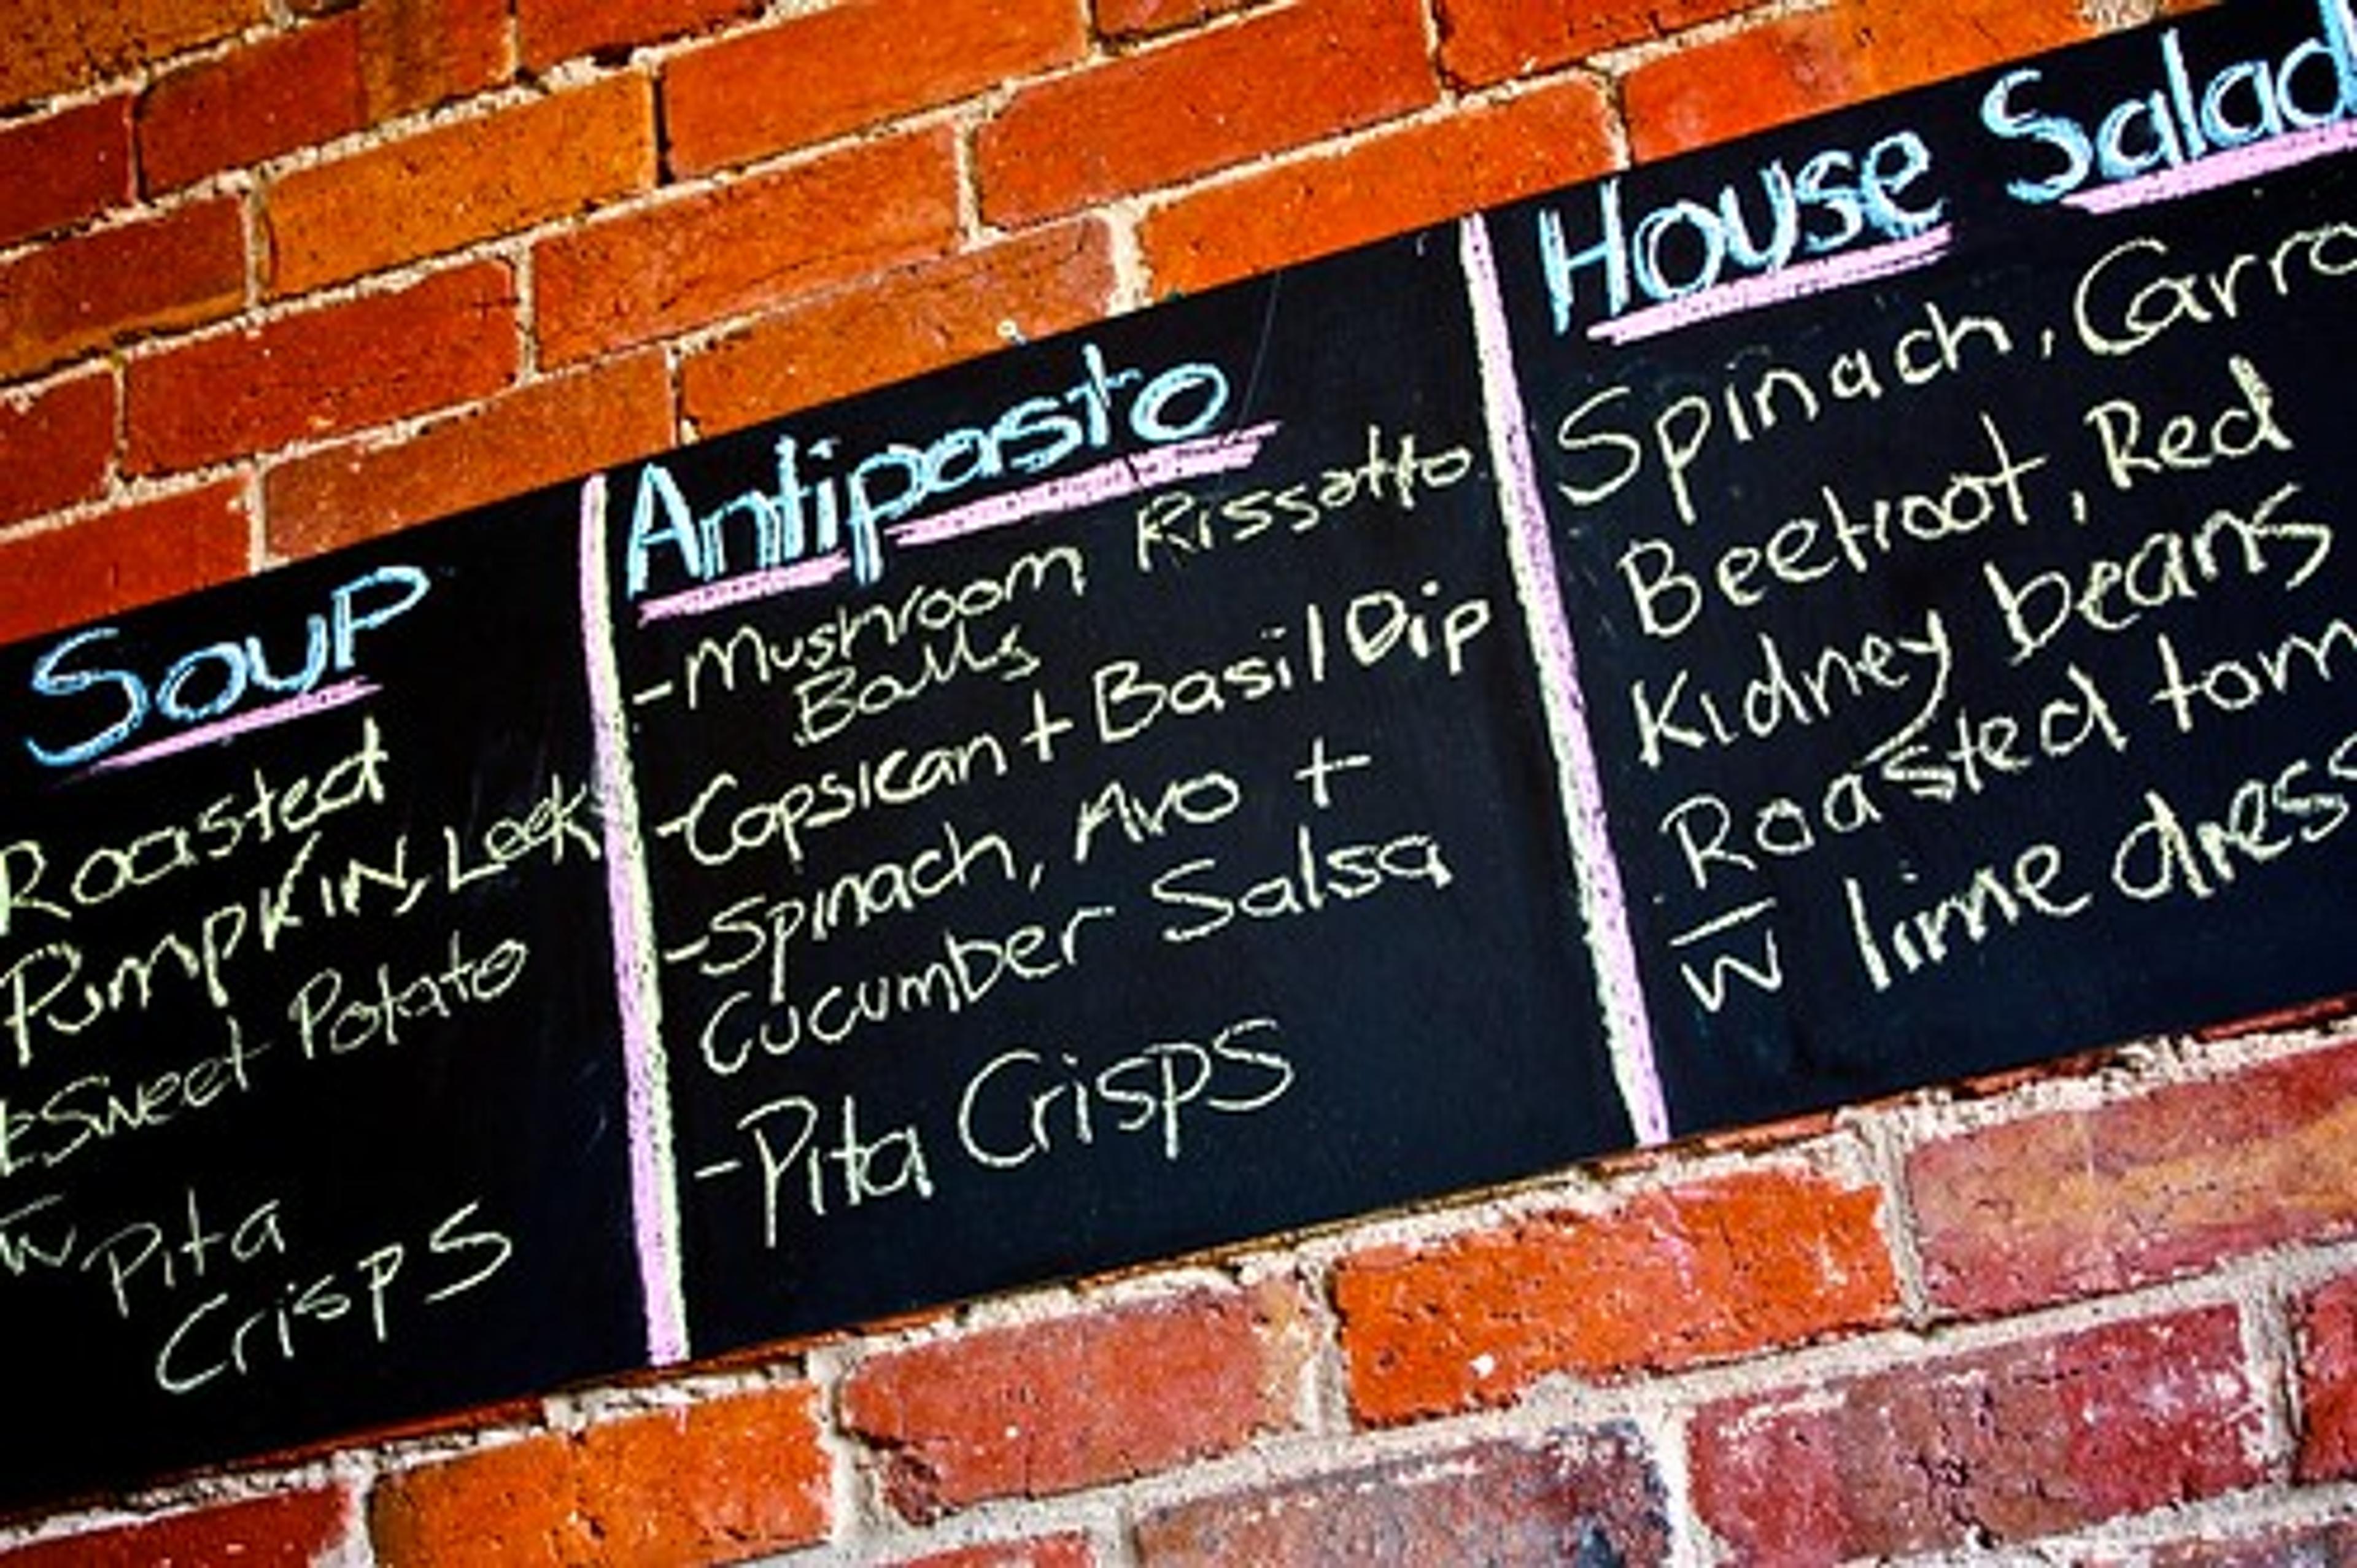 Soup
Roasted
Pumpkin, Leek
& Sweet Potato
w Pita
Crisps
Antipasto
- Mushroom Rissotto
Balls
- Capsican + Basil Dip
- Spinach, Avo +
Cucumber Salsa
- Pita Crisps
House Salad
Spinach, Carro
Beetroot, Red
Kidney beans
Roasted tom
w lime dress